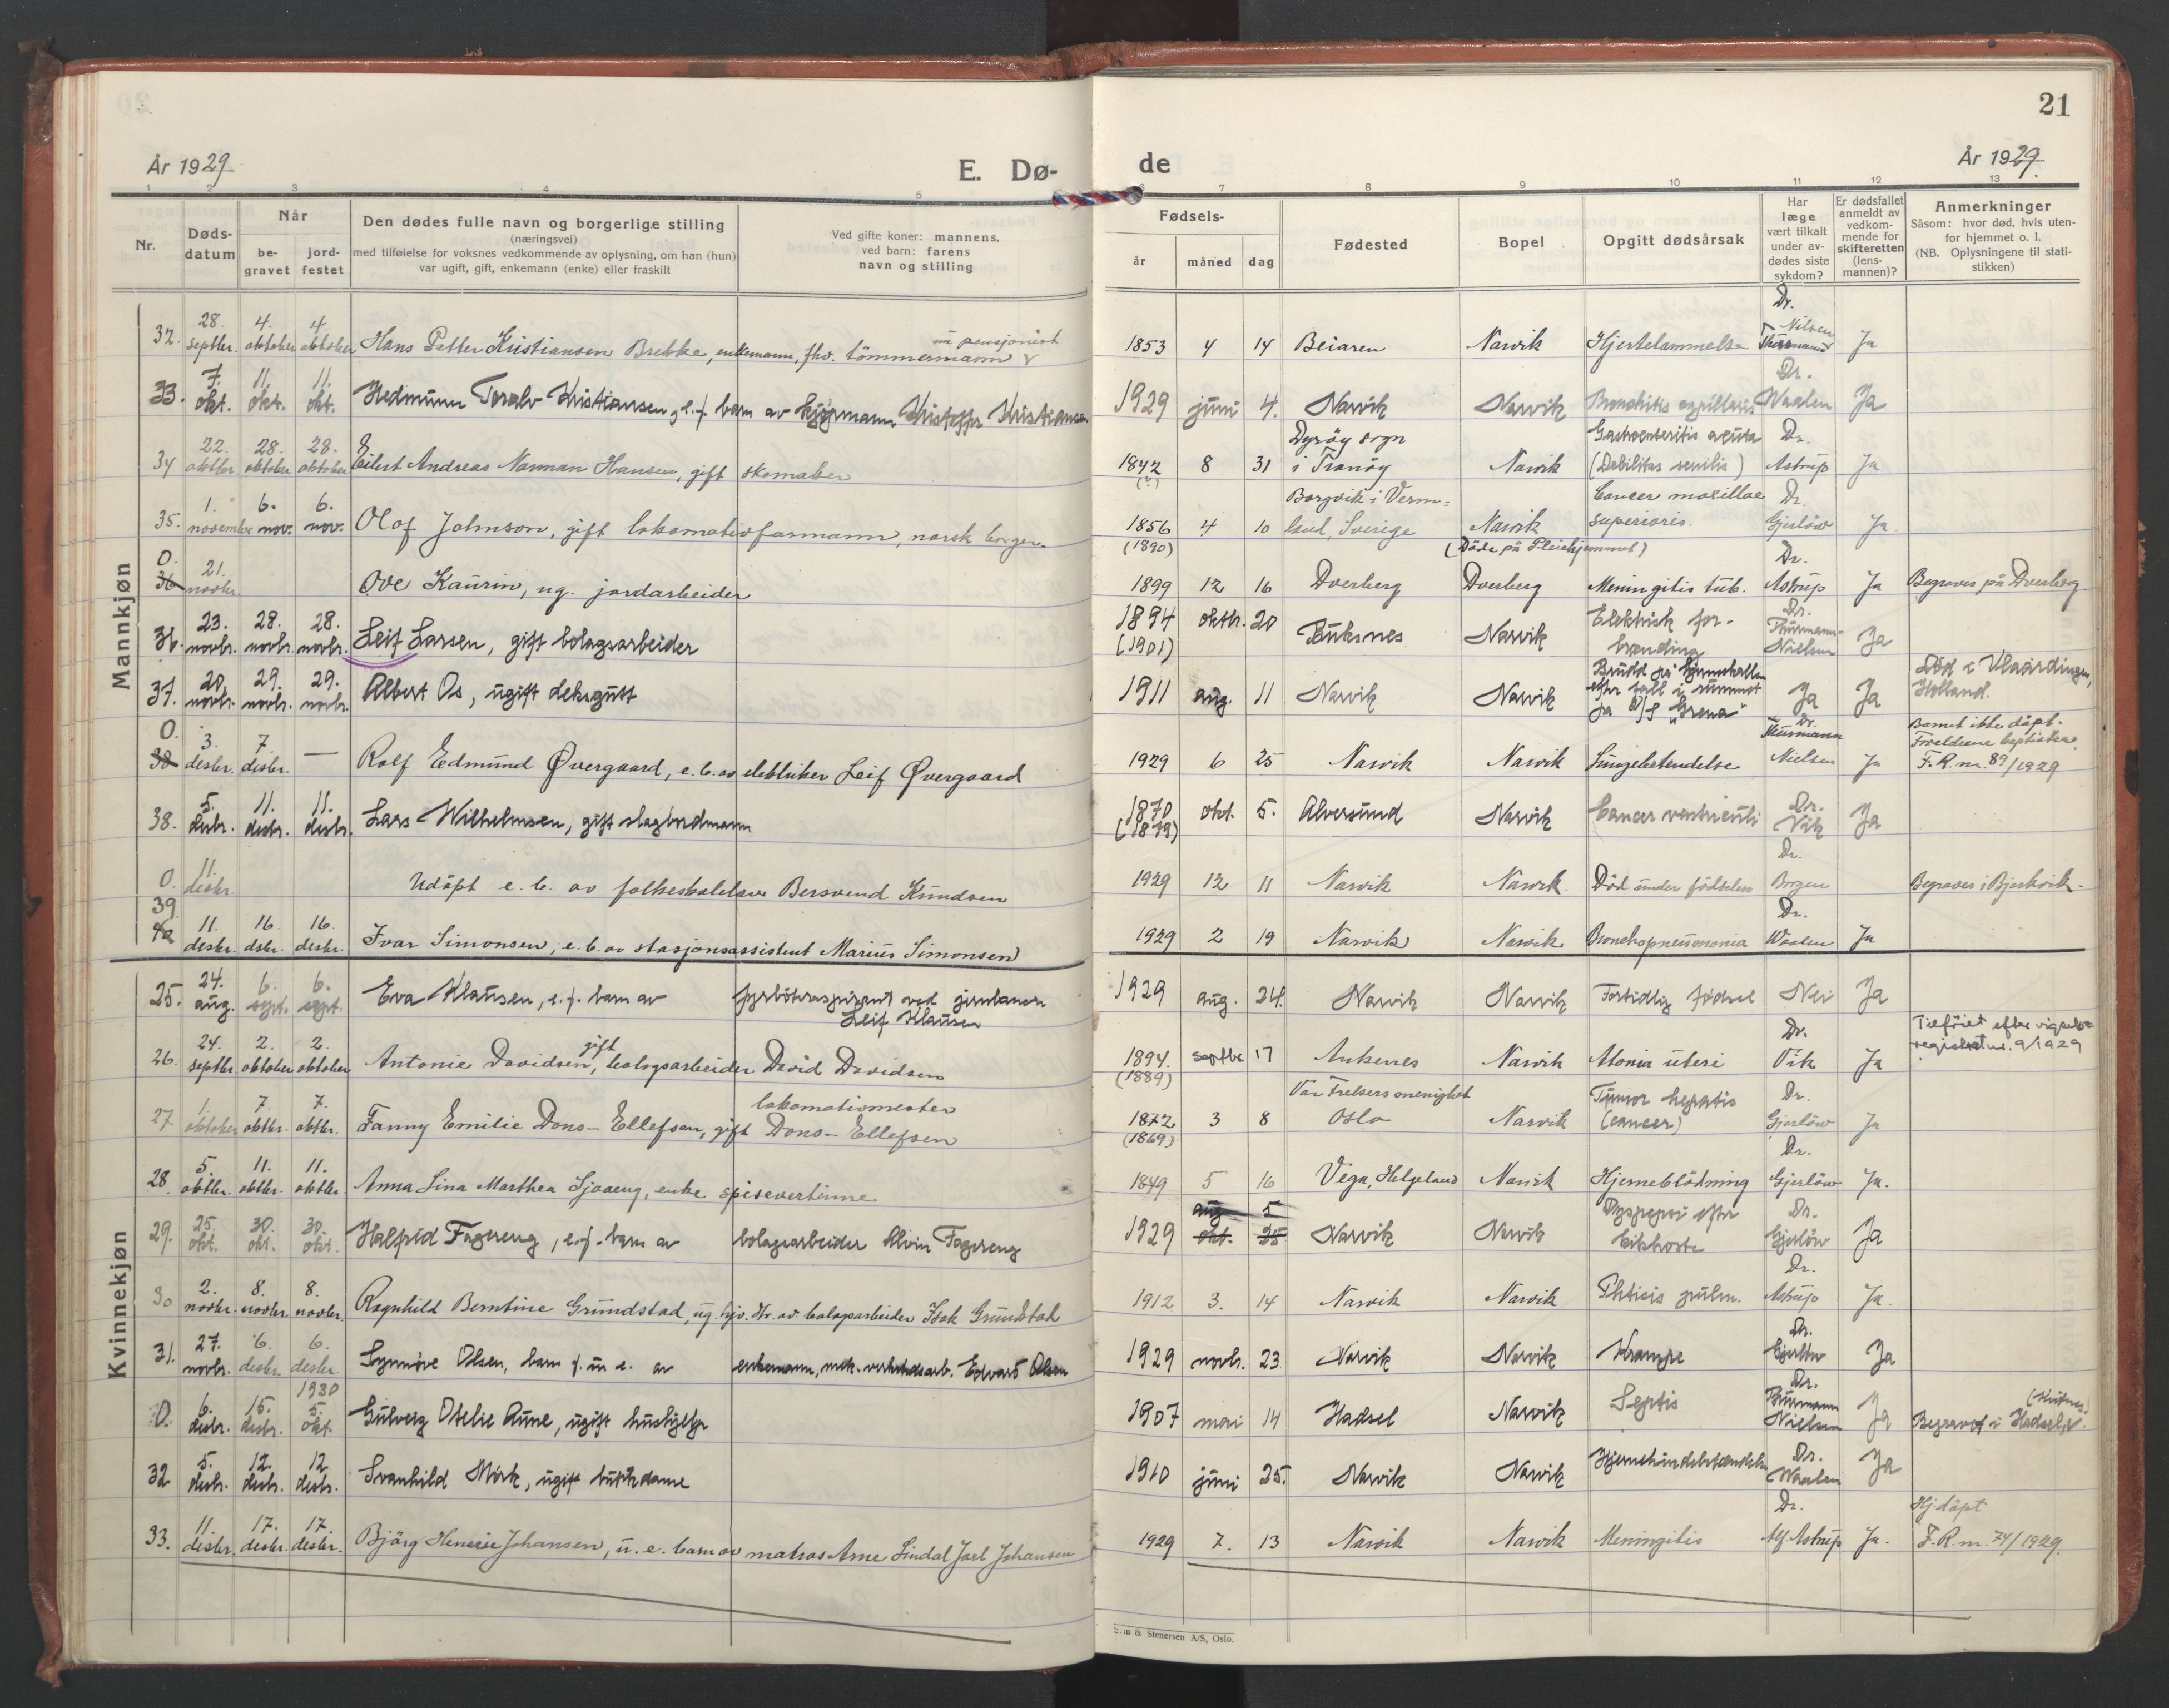 21
År 1929
E. Dø-
de
År 1929.
1 2 3 4 5 6 7 8 9 10 11 12 13
Nr.
Døds-
datum
Når
be-
gravet
jord-
festet
Den dødes fulle navn og borgerlige stilling
(næringsvei)
med tilføielse for voksnes vedkommende av oplysning, om han (hun)
var ugift, gift, enkemann (enke) eller fraskilt
Ved gifte koner: mannens,
ved barn: farens
navn og stilling
Fødsels-
år måned dag
Fødested
Bopel
Opgitt dødsårsak
Har
læge
vært tilkalt
under av-
dødes siste
sykdom?
Er dødsfallet
anmeldt av
vedkom-
mende for
skifteretten
(lens-
mannen)?
Anmerkninger
Såsom: hvor død, hvis uten-
for hjemmet o. l.
(NB. Oplysningene til stati-
stikken)
Mannkjøn
32. 28. septbr. 4. oktober 4. oktober Hans Petter Kristiansen Brekke, enkemann, fhv. tömmermann nu pensjonist 1853 4 14 Beiaren Narvik Hjertelammelse Dr. Thurmann Nilsen Ja
33. 7. okt. 11. okt. 11. okt. Hedmunn Toralv Kristiansen, e.f. barn av kjörmann Kristoffer Kristiansen 1929 juni 4. Narvik Narvik Bronchitis capillaris Dr. Waalen Ja
34 22. oktbr. 28. oktober 28. oktober Eilert Andreas Norman Hansen, gift skomaker 1842 (?) 8 31 Dyröy sogn i Tranöy Narvik Gastroenteritis acuta (Debilitas senilis) Dr. Astrup Ja
35. 1. november 6. nov. 6. nov. Olof Johnson, gift lokomotivformann, norsk borger. 1856 4 10 Borgvik i Verm=land, Sverige Narvik Cancer maxillae superioris. Dr. Gjerlöw Ja
(1890) (Döde på Pleiehjemmet)
0. 36 21. novbr. Ove Kaurin, ug. jordarbeider 1899 12 16 Dverberg Dverberg Meningitis tub. Dr. Astrup Ja Begraves på Dverberg
36. 23. novbr. 28. novbr. 28. novbr. Leif Larsen, gift bolagsarbeider 1894 (1901) oktbr. 20 Buksnes Narvik Elektrisk for-brending Dr. Thurmann-Nielsen Ja
37. 20. novbr. 29. novbr. 29. novbr. Albert Os, ugift dekksgutt 1911 aug. 11 Narvik Narvik Brudd på hjerneskallen efter fall i rummet på D/S "Grena" Ja Ja Död i Vlaardingen, Holland.
0. 38 3. desbr. 7. desbr. — Rolf Edmund Øvergaard, e. b. av elektriker Leif Øvergaard 1929 6 25 Narvik Narvik Lungebetendelse Dr. Thurmann Nielsen Ja Barnet ikke döpt. Foreldrene baptister. F. R. nr. 89/1929
38. 5. desbr. 11. desbr. 11. desbr. Lars Wilhelmsen, gift slagbordmann 1870 (1879) okt. 5. Alversund Narvik Cancer ventriculi Dr. Vik Ja
0. 11. desbr. Udöpt e. b. av folkeskolelærer Bersvend Knudsen 1929 12 11 Narvik Narvik. Död under födselen Dr. Borgen Begraves i Bjerkvik.
39. 40 11. desbr. 16. dsbr. 16. desbr. Ivar Simonsen, e. b. av stasjonsassistent Marius Simonsen 1929 2 19 Narvik Narvik Bronchopneumonia Dr. Waalen Ja
Kvinnekjøn
25. 24. aug. 6. sept. 6. sept. Eva Klausen, e. f. barn av fyrböteraspirant ved jernbanen Leif Klausen 1929 aug. 24. Narvik Narvik Fortidlig födsel Nei Ja
26. 24. septbr. 2. oktober 2. oktober Antonie Davidsen, gift bolagsarbeider David Davidsen 1894. (1889) septbr. 17 Ankenes Narvik Atonia uteri Dr. Vik Ja Tilföiet efter vigsels=registret nr. 9/1929
27. 1. oktober 7. oktbr. 7. oktbr. Fanny Emilie Dons-Ellefsen, gift lokomotivmester Dons-Ellefsen 1872 (1869) 3 8 Vår Frelsers menighet Oslo Narvik Tumor hepatis (cancer) Dr. Gjerlöw Ja
28. 5. oktbr. 11. oktbr. 11. oktbr. Anna Lina Marthea Sjaaeng, enke spisevertinne 1849 5 16 Vega, Helgeland Narvik Hjerneblödning Dr. Gjerlöw Ja.
29. 25. okt. 30. okt. 30. okt. Halfrid Fagereng, e.f. barn av bolagsarbeider Alvin Fagereng 1929 aug 5 okt. 25 Narvik Narvik Dyspepsi efter kikhoste Dr. Gjerlöw Ja
30 2. novbr. 8. novbr. 8. novbr. Ragnhild Berntine Grundstad, ug. hjv. dtr. av bolagsarbeider Isak Grundstad 1912 3. 14 Narvik Narvik Phtisis pulm. Dr. Astrup Ja.
31. 27. novbr. 6. desbr. 6. desbr. Synnöve Olsen, barn f. u e. av enkemann, mek. verkstedsarb. Edvard Olsen 1929 novbr. 23 Narvik Narvik Krampe Dr. Gjerlöw Ja
0. 6. desbr. 15. desbr. 1930 5. okt. Gulveig Otelie Aune, ugift hushjelp 1907 mai 14 Hadsel Narvik Septis Dr. Thurmann Nielsen Ja Begravet i Hadsel
32 5. desbr. 12. desbr. 12 desbr. Svanhild Mörk, ugift butikkdame 1910 juni 25. Narvik Narvik Hjernehindebetændelse Dr. Waalen Ja
33. 11. desbr. 17. desbr. 17. desbr. Björg Henrie Johansen, u. e. barn av matros Arne Lindal Jarl Johansen 1929 7. 13 Narvik Narvik Meningitis Dr. Alf. Astrup Ja. Hj.döpt F. R. nr. 74/1929.
& Stenersen A/S, Oslo.